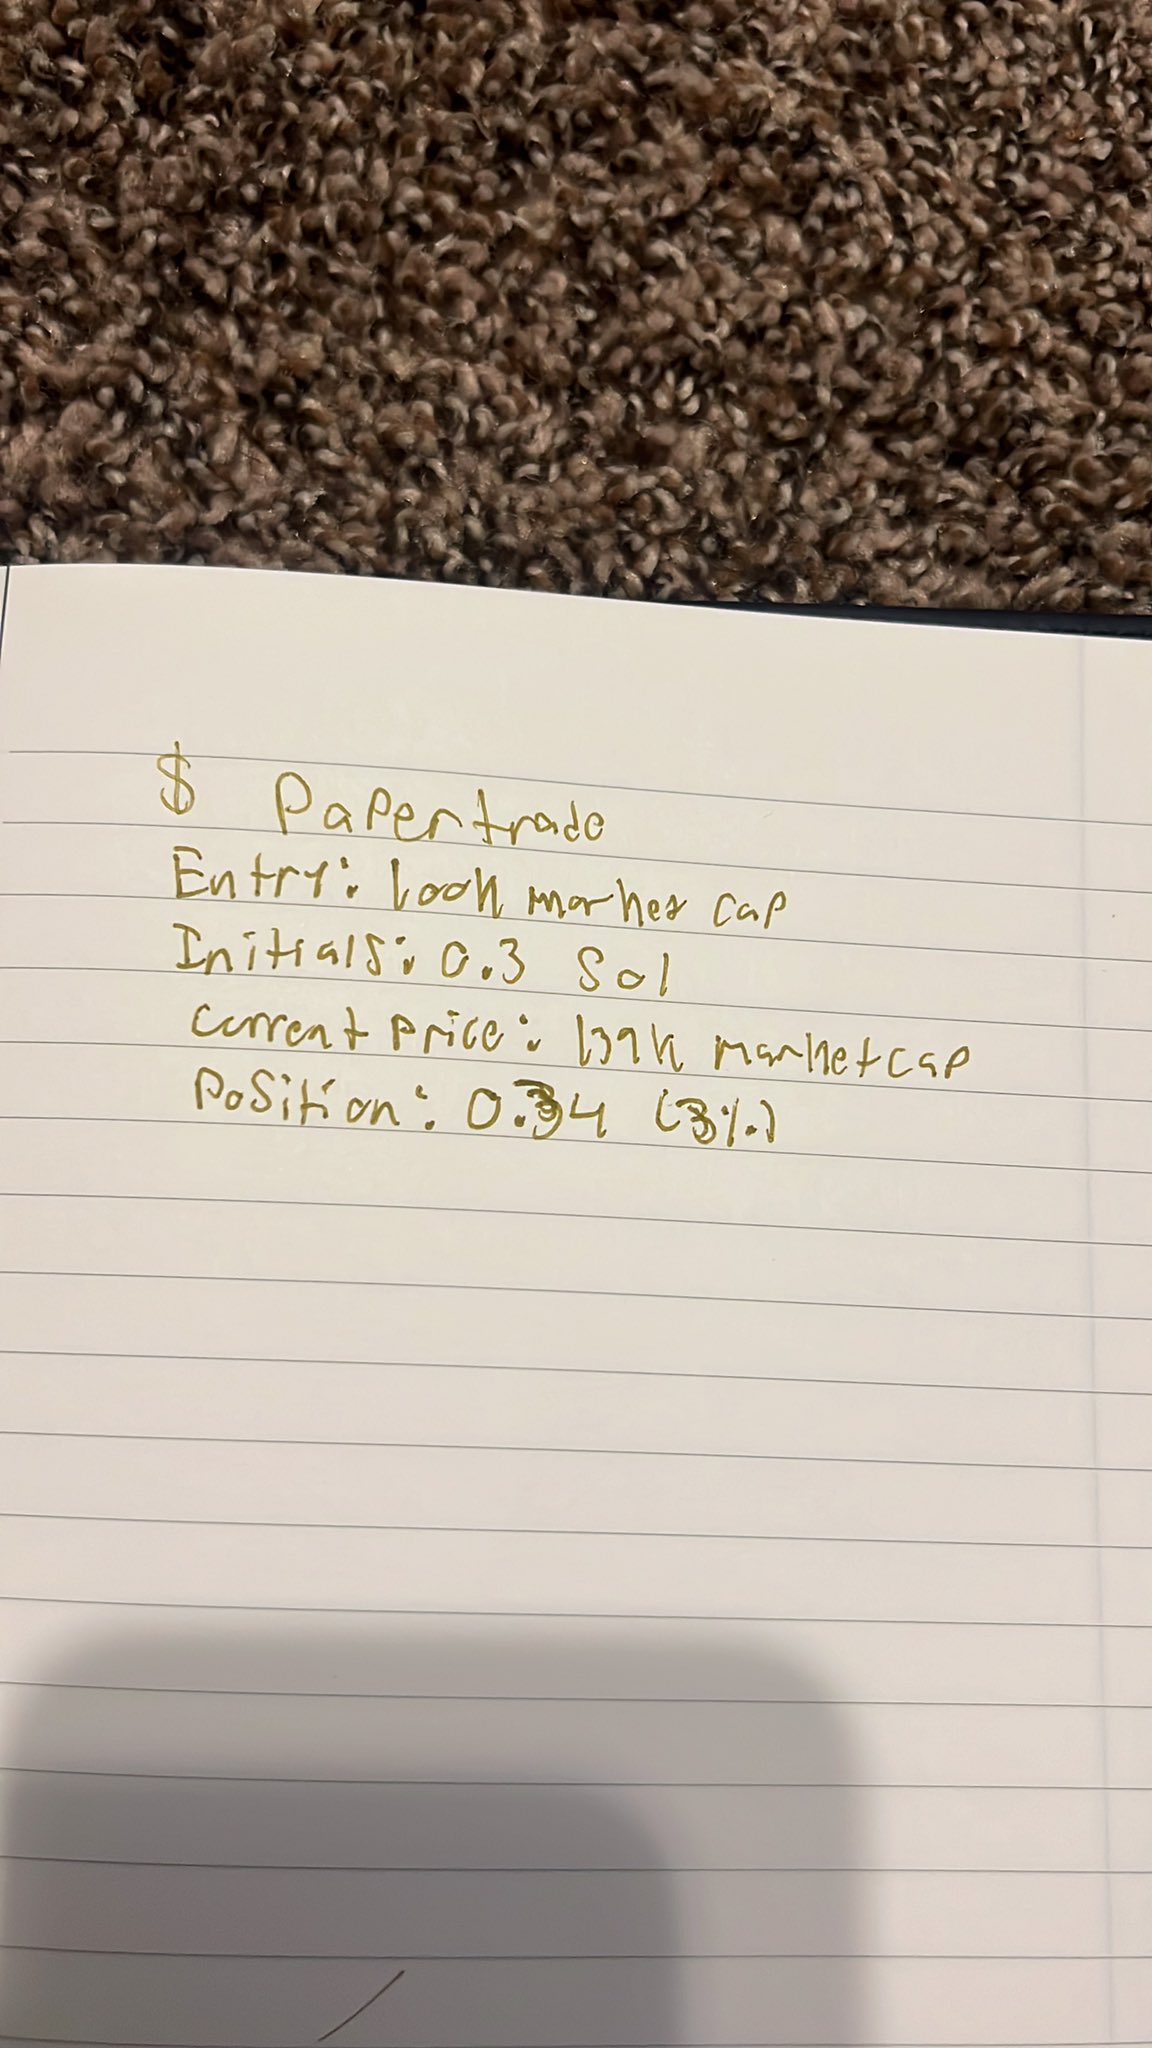 $ Papertrade
Entry: 100k market cap
Initials: 0.3 Sol
Current price: 139k marketcap
Position: 0.34 (3%)